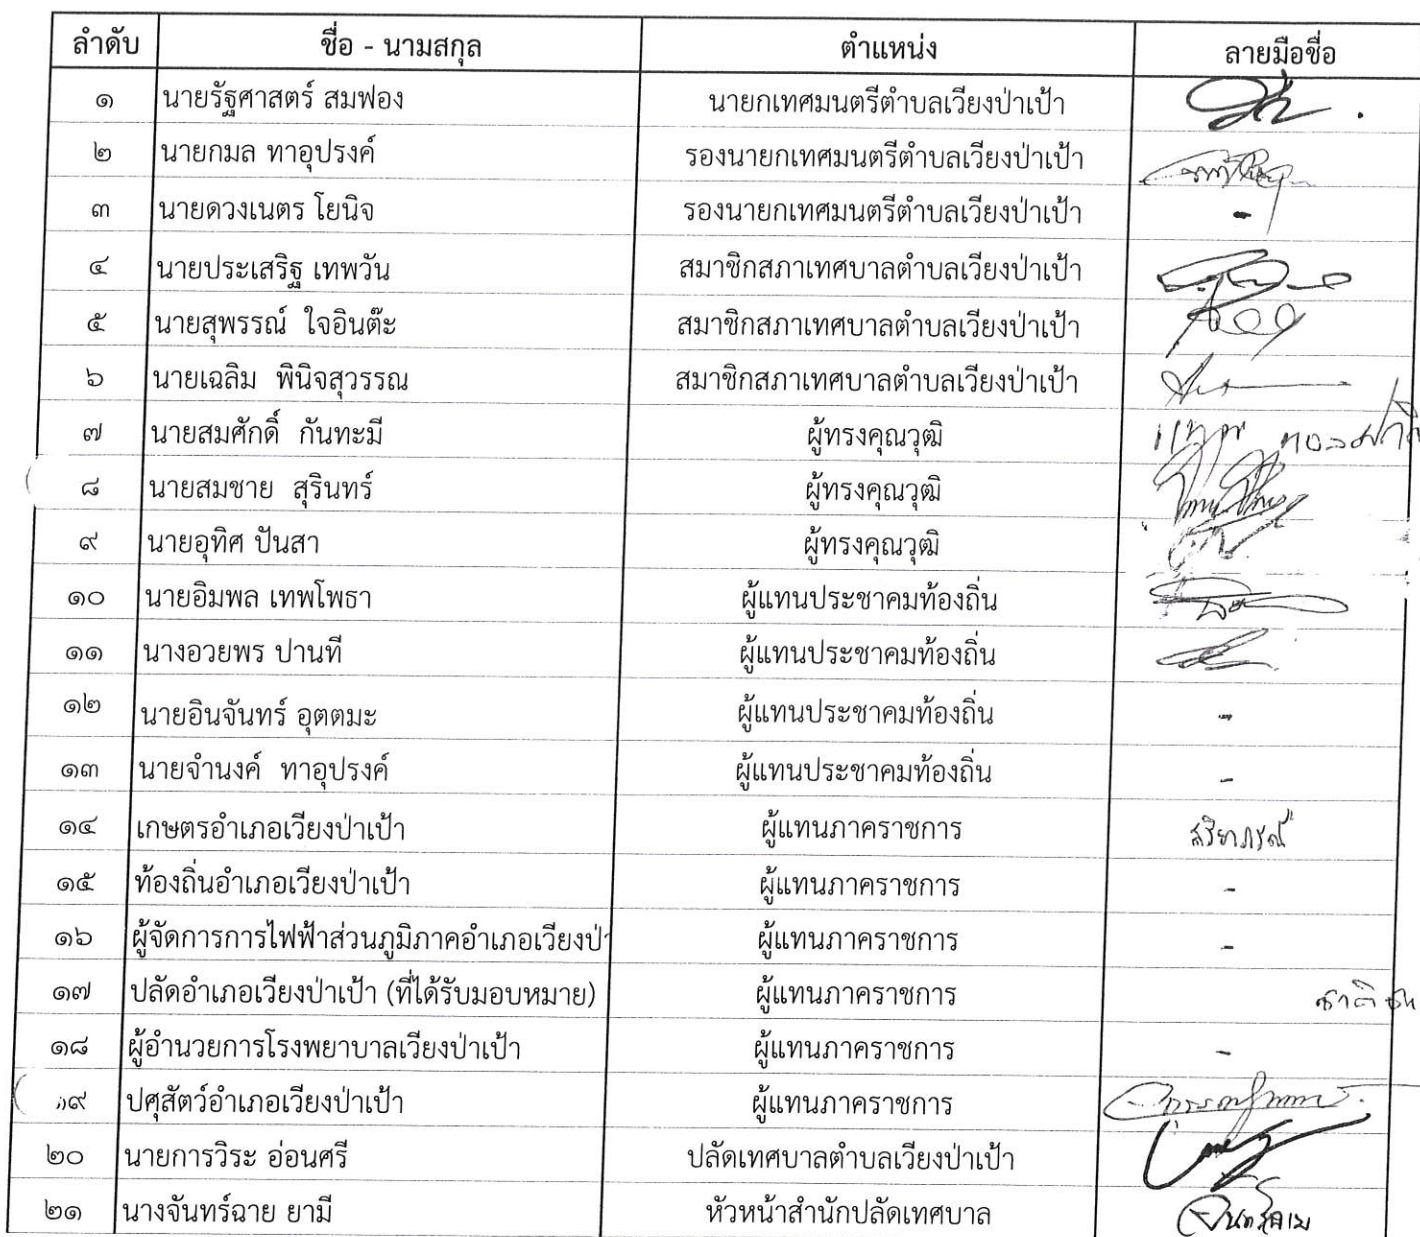 ลำดับ ชื่อ - นามสกุล ตำแหน่ง ลายมือชื่อ
๑ นายรัฐศาสตร์ สมฟอง นายกเทศมนตรีตำบลเวียงป่าเป้า
๒ นายกมล ทาอุปรงค์ รองนายกเทศมนตรีตำบลเวียงป่าเป้า
๓ นายดวงเนตร โยนิจ รองนายกเทศมนตรีตำบลเวียงป่าเป้า -
๔ นายประเสริฐ เทพวัน สมาชิกสภาเทศบาลตำบลเวียงป่าเป้า
๕ นายสุพรรณ์ ใจอินต๊ะ สมาชิกสภาเทศบาลตำบลเวียงป่าเป้า
๖ นายเฉลิม พินิจสุวรรณ สมาชิกสภาเทศบาลตำบลเวียงป่าเป้า
๗ นายสมศักดิ์ กันทะมี ผู้ทรงคุณวุฒิ
๘ นายสมชาย สุรินทร์ ผู้ทรงคุณวุฒิ
๙ นายอุทิศ ปันสา ผู้ทรงคุณวุฒิ
๑๐ นายอิมพล เทพโพธา ผู้แทนประชาคมท้องถิ่น
๑๑ นางอวยพร ปานที ผู้แทนประชาคมท้องถิ่น
๑๒ นายอินจันทร์ อุตตมะ ผู้แทนประชาคมท้องถิ่น -
๑๓ นายจำนงค์ ทาอุปรงค์ ผู้แทนประชาคมท้องถิ่น -
๑๔ เกษตรอำเภอเวียงป่าเป้า ผู้แทนภาคราชการ
๑๕ ท้องถิ่นอำเภอเวียงป่าเป้า ผู้แทนภาคราชการ -
๑๖ ผู้จัดการการไฟฟ้าส่วนภูมิภาคอำเภอเวียงป่ ผู้แทนภาคราชการ -
๑๗ ปลัดอำเภอเวียงป่าเป้า (ที่ได้รับมอบหมาย) ผู้แทนภาคราชการ
๑๘ ผู้อำนวยการโรงพยาบาลเวียงป่าเป้า ผู้แทนภาคราชการ -
๑๙ ปศุสัตว์อำเภอเวียงป่าเป้า ผู้แทนภาคราชการ
๒๐ นายการวิระ อ่อนศรี ปลัดเทศบาลตำบลเวียงป่าเป้า
๒๑ นางจันทร์ฉาย ยามี หัวหน้าสำนักปลัดเทศบาล